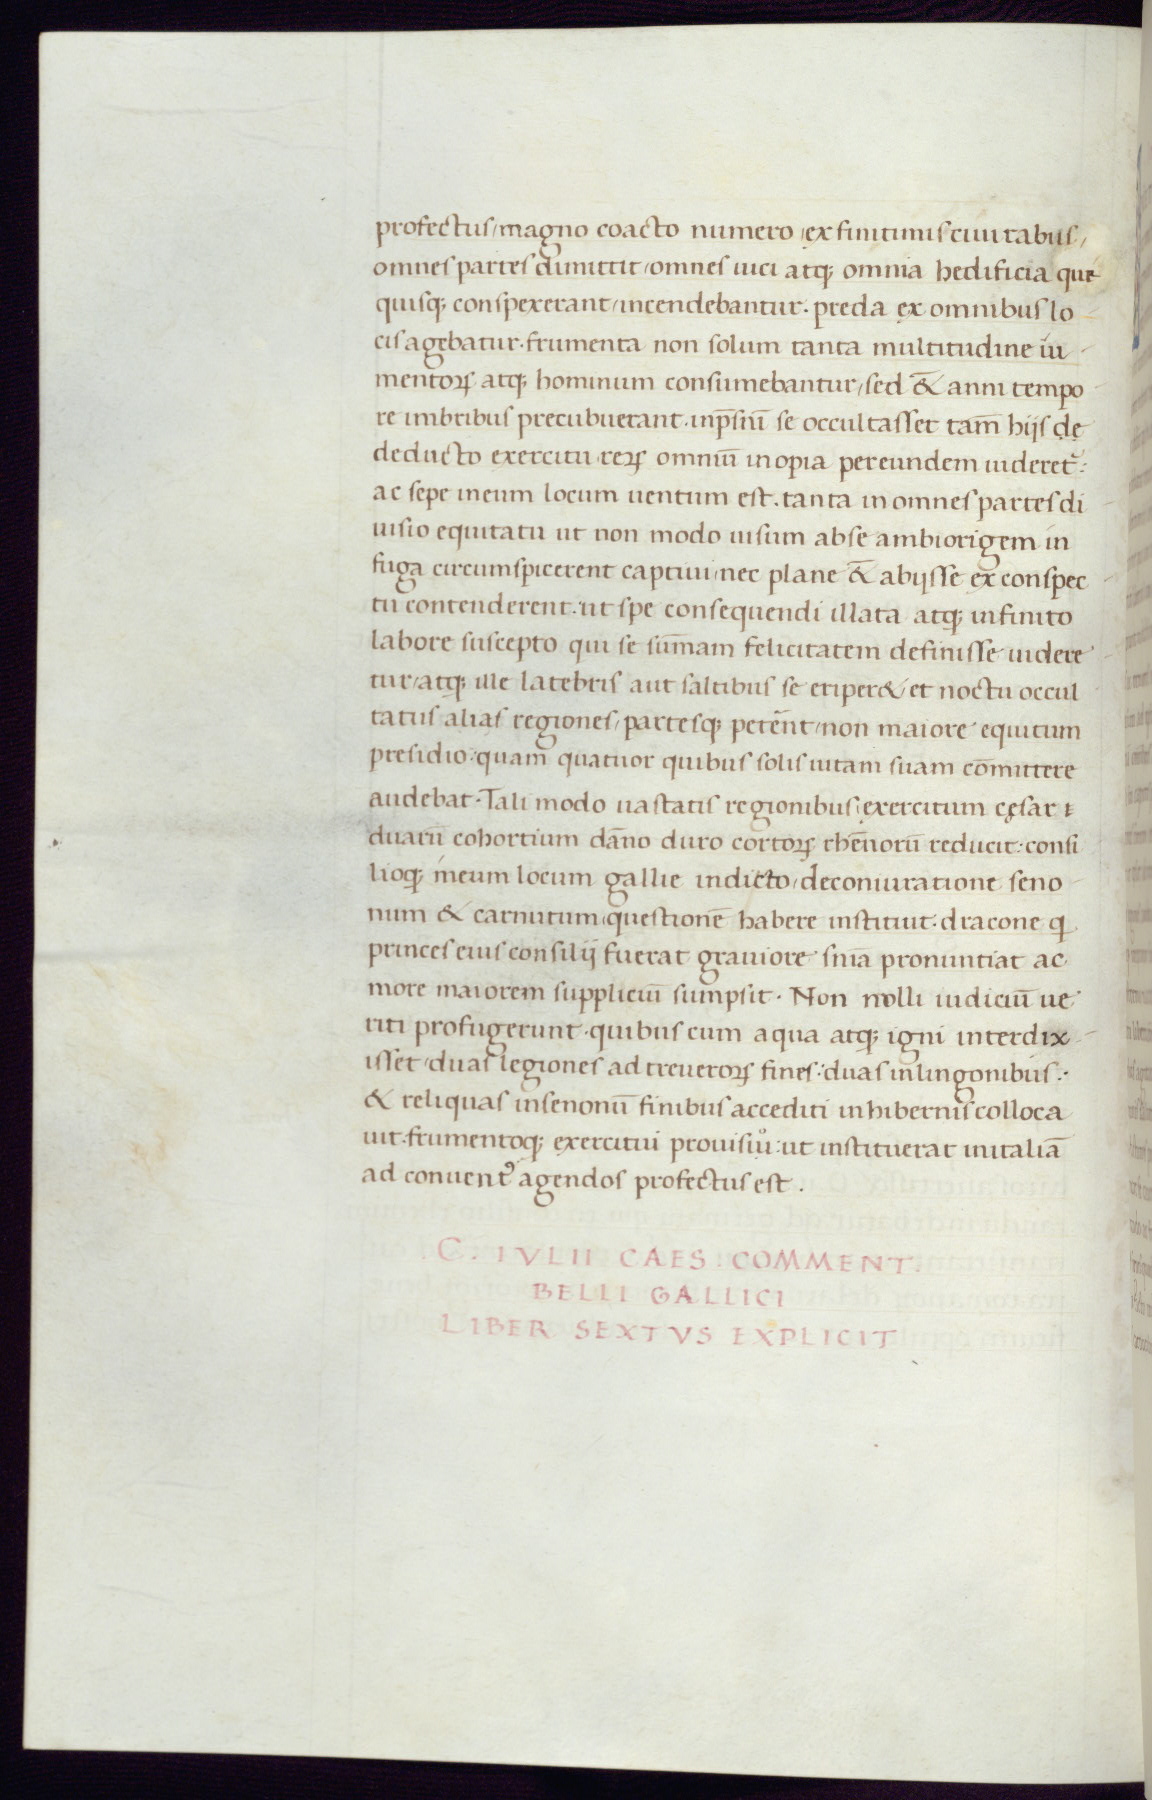 profectus, magno coacto numero, ex finitimis ciuitabus,
omnes partes dimittit, omnes uici atq; omnia hedificia que
quisq; conspexerant, incendebantur. preda ex omnibus lo
cis agebatur. frumenta non solum tanta multitudine iu
mentorꝝ atq; hominum consumebantur, sed & anni tempo
re imbribus precubuerant. inp̄siū se occultasset tam̄ hijs de
deducto exercitu rerꝝ omniū inopia pereundem uideret᷑:
ac sepe in eum locum uentum est. tanta in omnes partes di
uisio equitatu ut non modo uisum abse ambiorigem in
fuga circumspicerent captiui, nec plane & abijsse ex conspec
tu contenderent. ut spe consequendi illata atq; infinito
labore suscepto qui se sum̄am felicitatem definisse uidere
tur, atq; ille latebris aut saltibus se eriper&, et noctu occul
tatus alias regiones, partesq; petēnt, non maiore equitum
presidio: quam quatuor quibus solis uitam suam com̄ittere
audebat. Tali modo uastatis regionibus, exercitum cęsar
duarū cohortium dān̄o duro cortorꝝ rhen̄orū reducit: consi
lioq; in eum locum gallie indicto, deconiuratione seno
num & carnutum, questionē habere instituit. dracone q
princes eius consilij fuerat grauiore sn̄ia pronuntiat ac
more maiorem suppliciū sumpsit. Non nolli iudiciū ue
riti profugerunt. quibus cum aqua atq; igni interdix
isset, duas legiones ad treuerorꝝ fines: duas inlingonibus:
& reliquas insenonū finibus accediti inhibernis colloca
uit. frumentoq; exercitui prouisiu᷑: ut instituerat initaliā
ad conuentꝰ agendos profectus est.
C. IVLII CAES. COMMENT.
BELLI GALLICI
LIBER SEXTVS EXPLICIT